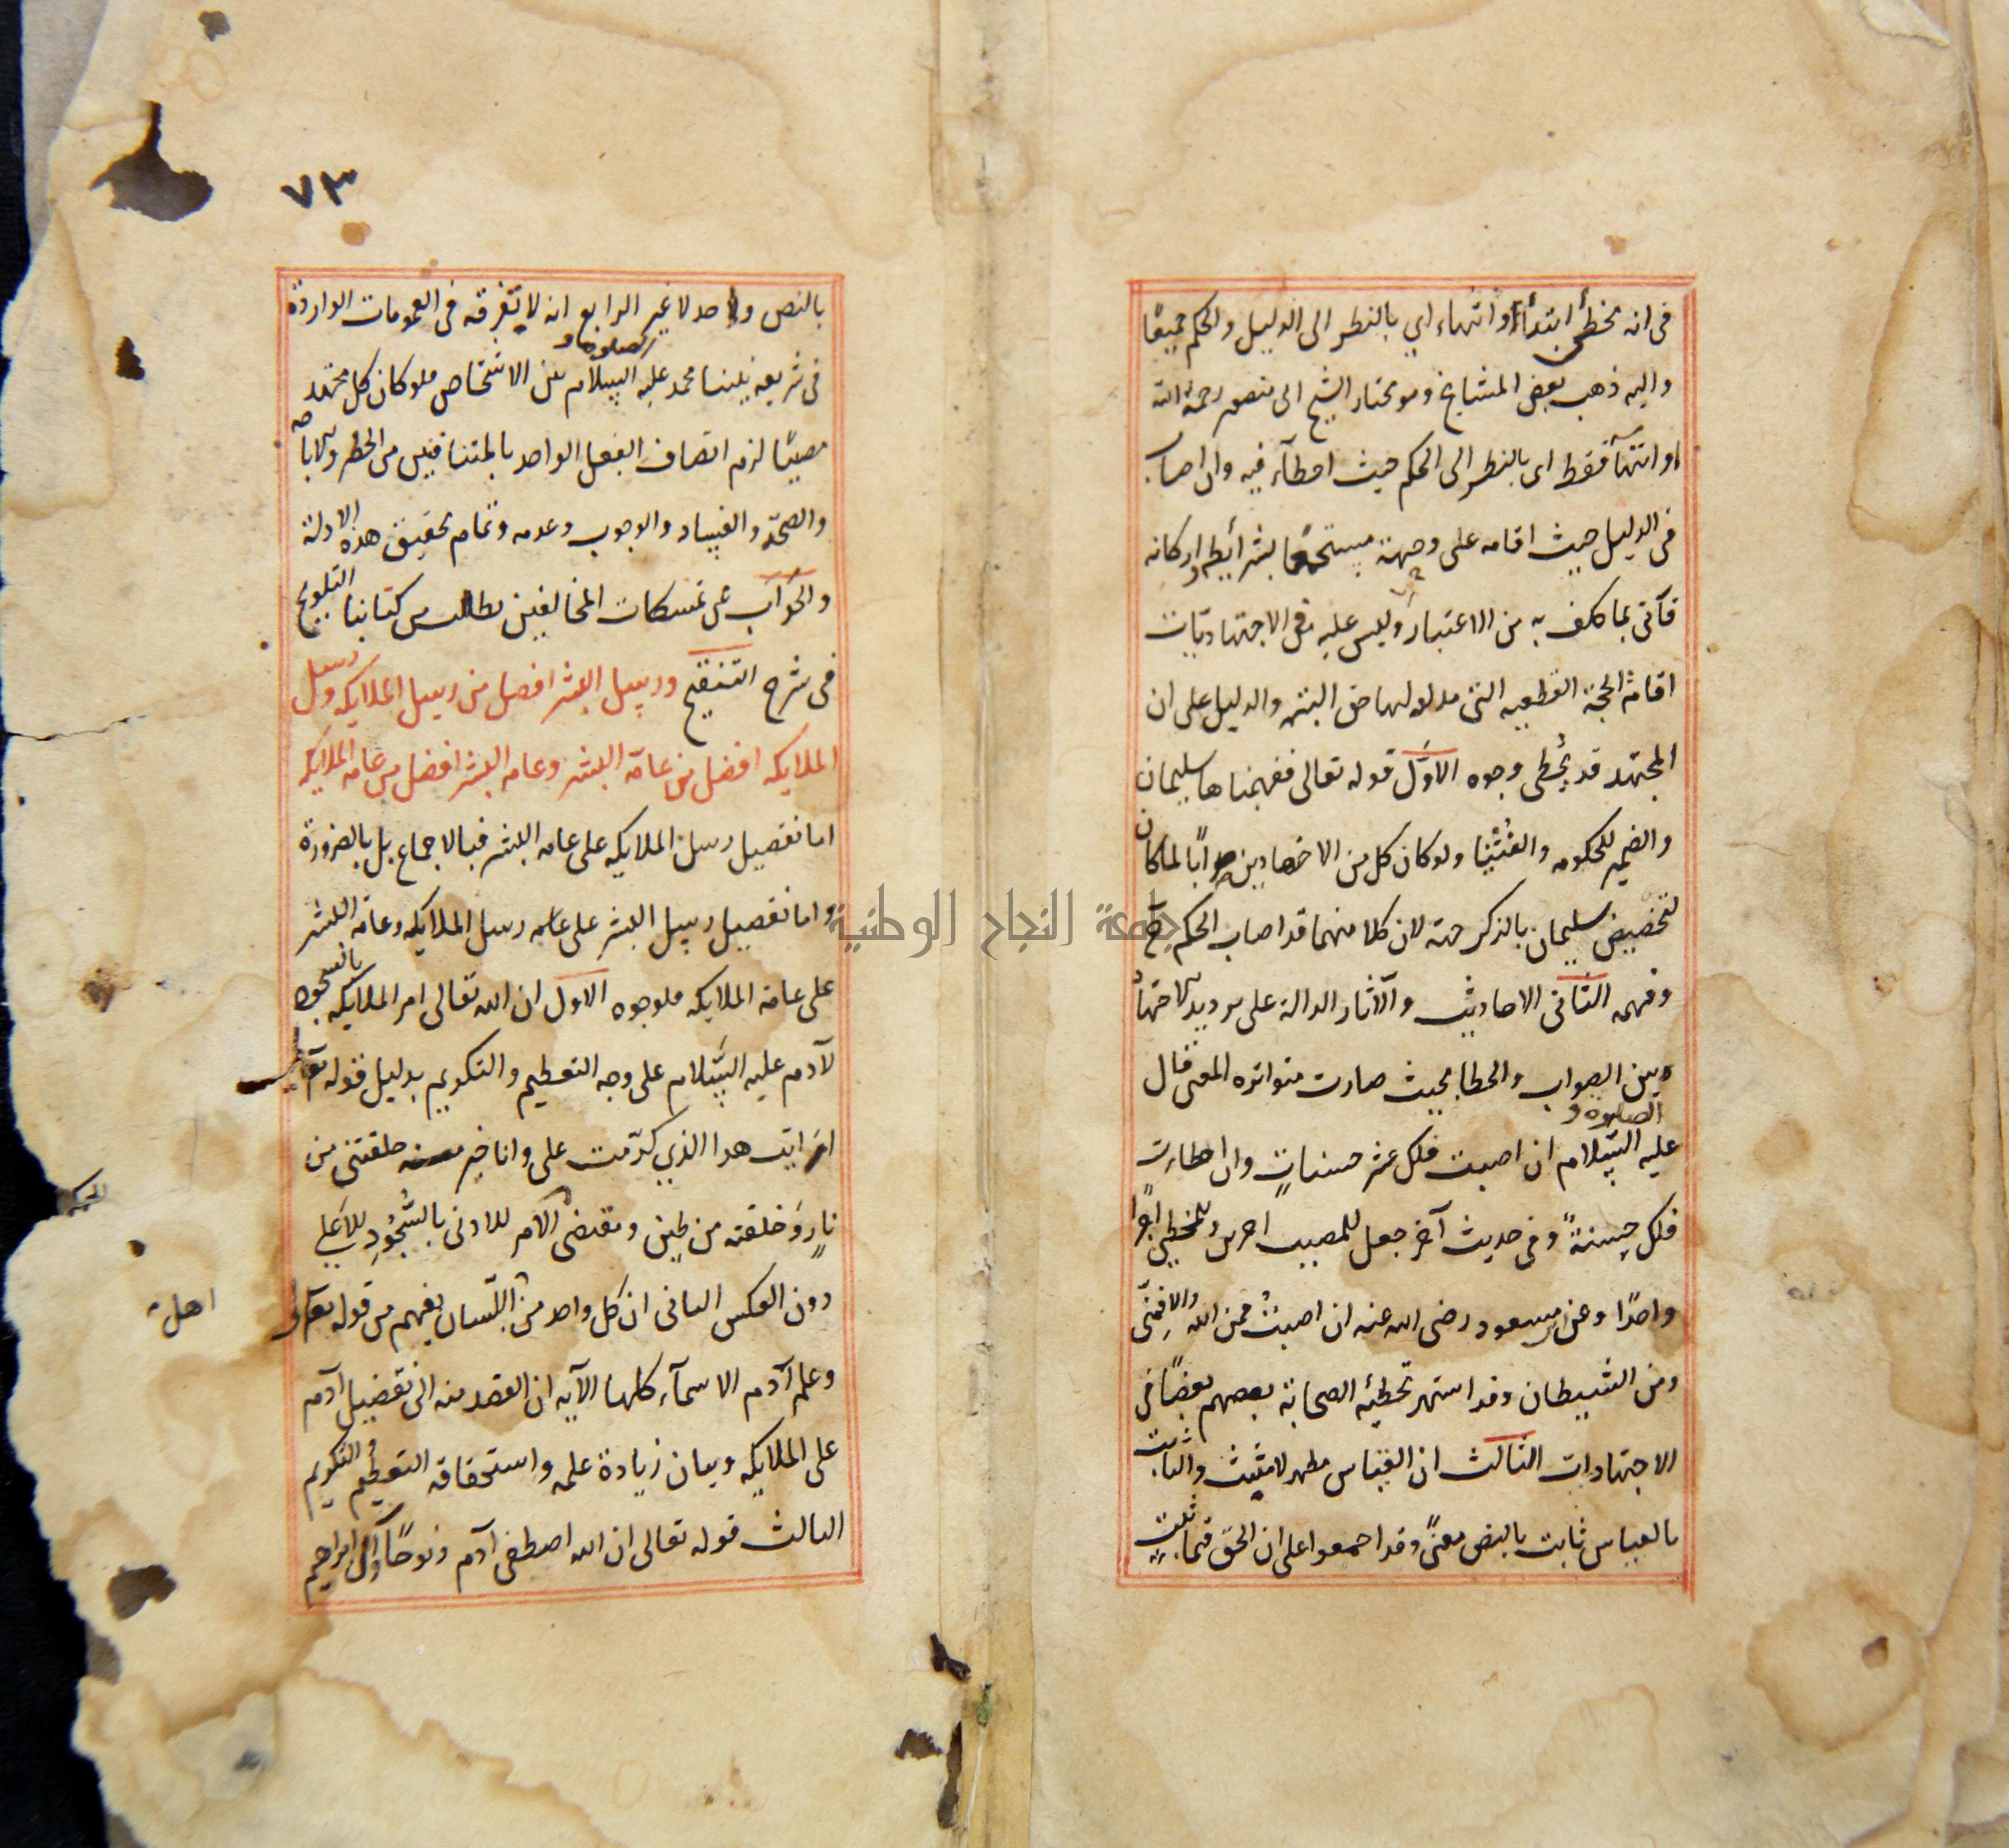 في انه مخطئ ابتدأ وانتهاء اي بالنظر الى الدليل والحكم جميعًا
واليه ذهب بعض المشايخ وهو مختار الشيخ ابى منصور رحمة الله
او انتهآ فقط اى بالنظر الى الحكم حيث اخطآء فيه وان اصاب
فى الدليل حيث اقامه على وجهه مستجمعًا بشرائطه واركانه
فآتى بما كلف به من الاعتبار وليس عليه فى الاجتهاديّات
اقامة الحجة القطعيه التى مدلولها حق البته والدليل على ان
المجتهد قد يخطى وجوه الاوّل قوله تعالى ففهمناها سليمان
والضمير للحكومه والفُتْيَا ولو كان كل من الاجتهادين صوابًا لما كان
لتخصيص سليمان بالذكر جهة لان كلا منهما قد اصاب الحكم ح
وفهمه الثانى الاحاديث والآثار الدالة على ترديد الاجتهاد
بين الصواب والخطا بحيث صارت متواتره المعنى قال
عليه الصلوة والسّلام ان اصبت فلك عشر حسناتٍ وان اخطات
فلك حسنةً وفى حديث آخر جعل للمصيب اجرين وللمخطى اجرًا
واحدًا وعن ابن مسعود رضى الله عنه ان اصبتُ فمن الله والا فمنّى
ومن الشيطان وقد اشتهر تخطئه الصحابة بعضهم بعضًا فى
الاجتهادات الثالث ان القياس مظهر لا مثبت والثابت
بالقياس ثابت بالنص معنًى وقد اجمعوا على ان الحق فيما ثبت
٧٣
بالنص واحد لا غير الرابع انه لا تفرقه فى العمومات الواردة
فى شريعه نبينا محمد عليه الصلوة والسلام بين الاشخاص فلو كان كل مجتهد
مصيبًا لزم اتصاف الفعل الواحد بالمتنافيين من الحظر والاباحه
والصحّة والفساد والوجوب وعدمه وتمام تحقيق هذه الادلة
والجوآب عن تمسكات المخالفين يطلب من كتابنا التلويح
فى شرح التنقيح ورسل البشر افضل من رسل الملايكه ورسل
الملايكه افضل من عامّة البشر وعامه البشر افضل من عامه الملايكه
اما تفضيل رسل الملايكه على عامه البشر فبالاجماع بل بالضرورة
واما تفضيل رسل البشر على رسل الملايكه وعامه البشر
على عامة الملايكه فلوجوه الاول ان الله تعالى امر الملايكه بالسجود
لآدم عليه السّلام على وجه التعظيم والتكريم بدليل قوله تعالى
ارايت هذا الذي كرّمت على وانا خير منه خلقتنى من
نارٍ وخلقته من طين ومقتضى الامر للادنى بالسُّجُودِ للاعلى
دون العكس الثانى ان كل واحد من اهل اللّسان يفهم من قوله تعالى
وعلم آدم الاسمآء كلها الآيه ان القصد منه الى تفضيل آدم
على الملايكه وبيان زيادة علمه واستحقاقه التعظيم والتكريم
الثالث قوله تعالى ان الله اصطفى آدم ونوحًا وآل ابراهيم
جامعة النجاح الوطنية